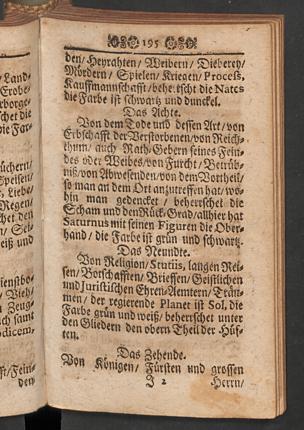 195
den/ Heyrahten/ Weibern/ Dieberey/
Mördern/ Spielen/ Kriegen/ Proceß,
Kauffmannschafft/ beherrschet die Nates
die Farbe ist schwartz und dunckel.
Das Achte.
Von dem Tode und dessen Art/ von
Erbschafft der Verstorbenen/ von Reich-
thum/ auch Rath-Gebern seines Fein-
des oder Weibes/ von Furcht/ Betrüb-
niß/ von Abwesenden/ von dem Vortheil/
so man an dem Ort anzutreffen hat/ wo-
hin man gedencket/ beherrschet die
Scham und den Rück-Grad/ allhier hat
Saturnus mit seinen Figuren die Ober-
hand/ die Farbe ist grün und schwartz.
Das Neundte.
Von Religion/ Studiis, langen Rei-
sen/ Botschafften/ Brieffen/ Geistlichen
und Juristischen Ehren-Aemtern/ Träu-
men/ der regierende Planet ist Sol, die
Farbe grün und weiß/ beherrschet unter
den Gliedern den obern Theil der Hüf-
ten.
Das Zehende.
Von Königen/ Fürsten und grossen
J 2 Herrn/